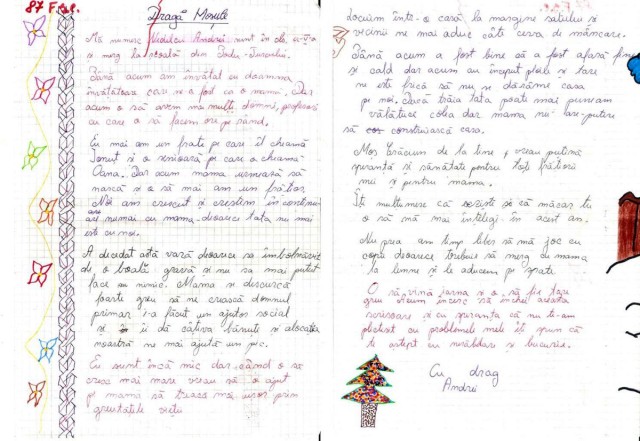 87 F.s.g.
Dragă Moșule
Mă numesc Vidulea Andrei sunt în cls. a-V-a
și merg la școală din Podu-Turcului.
Până acum am învățat cu doamna
învățătoare care ne-a fost ca o mamă. Dar
acum o să avem mai mulți domni, profesori
cu care o să facem ore pe rând.
Eu mai am un frate pe care îl cheamă
Ionuț și o surioară pe care o cheamă
Oana. Dar acum mama urmează să
nască și o să mai am un frățior.
Noi am crescut și creștem în continu-
are numai cu mama deoarece tata nu mai
este cu noi.
A decedat astă vară deoarece sa îmbolnăvit
de o boală gravă și nu sa mai putut
face nimic. Mama se descurcă
foarte greu să ne crească domnul
primar i-a făcut un ajutor social
și îi dă câțiva bănuți și alocația
noastră ne mai ajută un pic.
Eu sunt încă mic dar când o să
cresc mai mare vreau să o ajut
pe mama să treacă mai ușor prin
greutățile vieții
Locuim într-o casă la margine satului și
vecinii ne mai aduc câte ceva de mâncare.
Până acum a fost bine că a fost afară fine
și cald dar acum au început ploile și tare
ne este frică să nu se dărâme casa
pe noi. Dacă trăia tata poate mai puneam
vălătuci colea dar mama nu are putere
să construiască casa.
Moș Crăciun de la tine vreau puțină
speranță și sănătate pentru toți frățiorii
mei și pentru mama.
Îți mulțumesc că exiști și că măcar tu
o să mă mai înțelegi în acest an.
Nu prea am timp liber să mă joc cu
copii deoarece trebuie să merg cu mama
la lemne și le aducem pe spate.
O să vină iarna și o să fie tare
greu acum încerc să închei această
scrisoare și cu speranța că nu te-am
plictisit cu problemele mele îți spun că
te aștept cu nerăbdare și bucurie.
Cu drag
Andrei